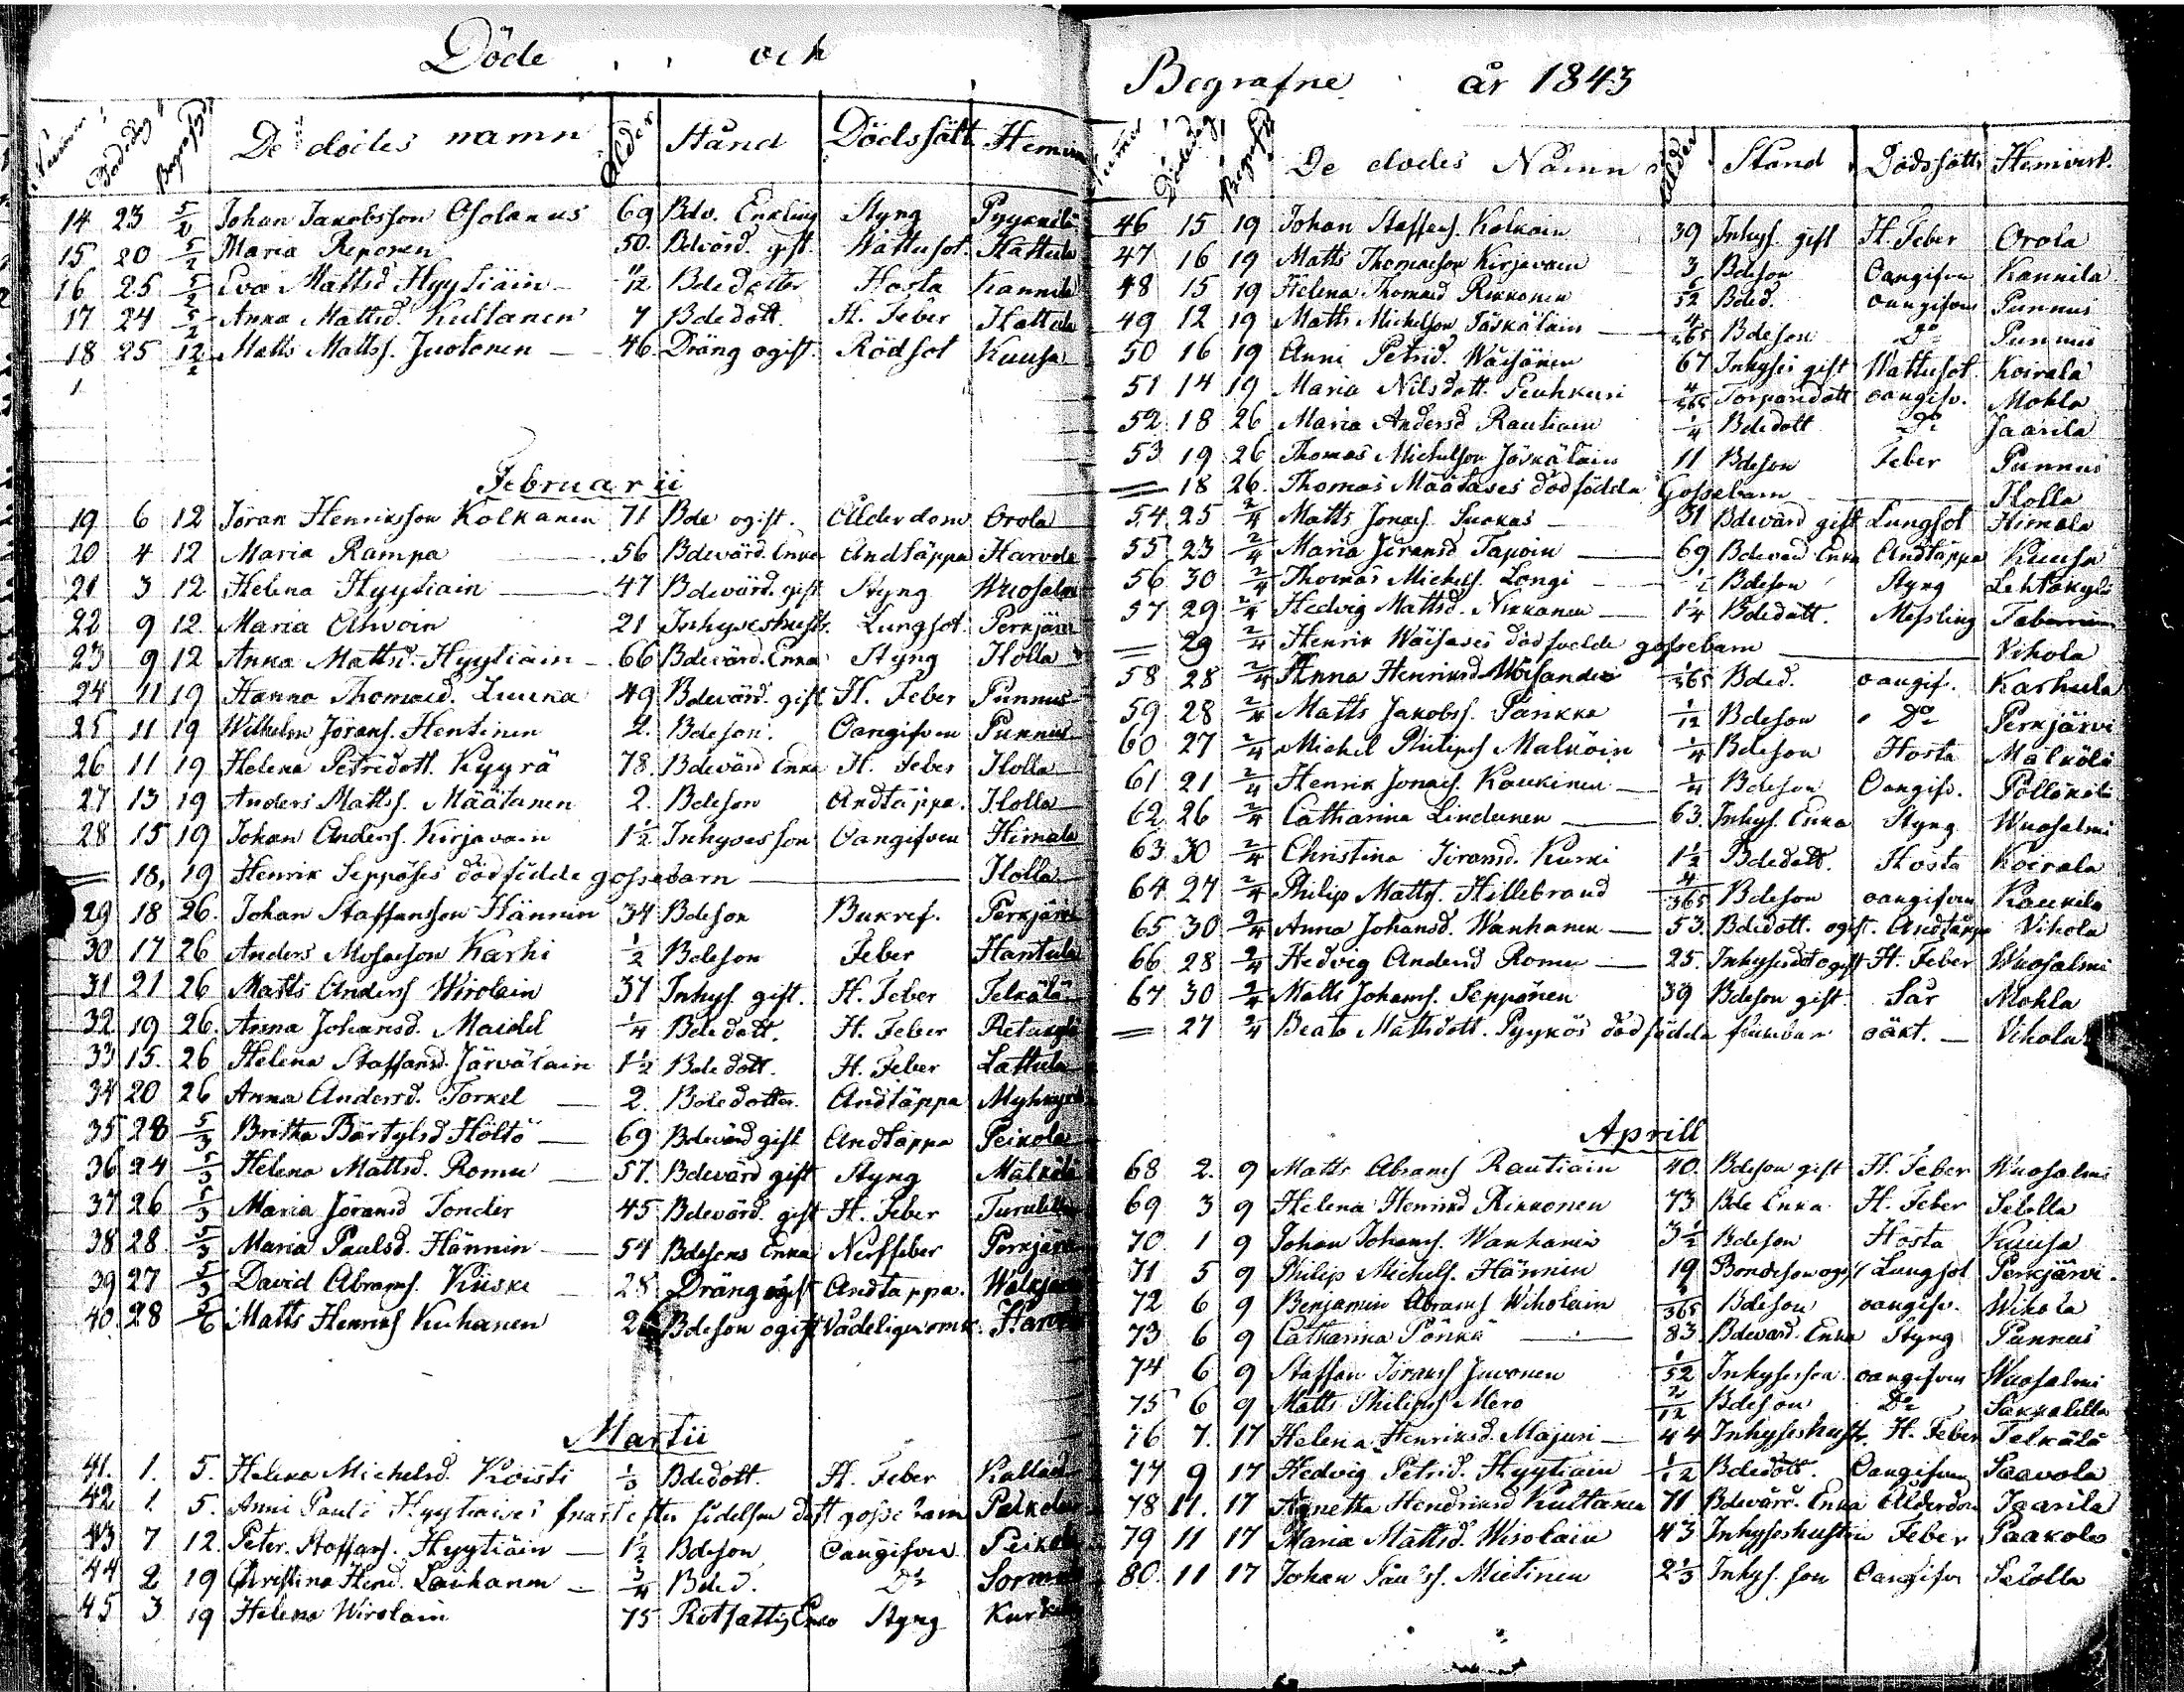 Döde och
Numer Dödsdag Begrafsd De dödes namn Ålder Stånd Dödssätt Hemvi
14 23 5/2 Johan Jakobsson Asolanus 69 Bdv. Enkling Styng Pyykkilä
15 20 5/2 Maria Reponen 50. Bdevärd. gift Wattusot. Hattula
16 25 5/2 Eva Mattsd Hyytiäin 11/12 Bdedotter Hosta Kannila
17 24 5/2 Anna Mattsd. Kultanen 7 Bdedott. H. Feber Hattula
18 25 12/2 Matts Mattss. Juotonen 46. Dräng ogift. Rödsot Kuusa
Februarii
19 6 12 Jöran Henriksson Kolkanen 71 Bde ogift. Ålderdom Orola
20 4 12 Maria Rampa 56 Bdevärd. Enka Andtäppa Harvola
21 3 12 Helena Hyytiäin 47 Bdevärd. gift Styng Wuosalm
22 9 12. Maria Ahvoin 21 Inhyseshust. Lungsot. Perkjärv
23 9 12 Anna Mattsd. Hyytiäin 66 Bdevärd. Enka Styng Ilolla
24 11 19 Hanna Thomasd. Luuka 49 Bdevärd. gift H. Feber Punnus
25 11 19 Wilhelm Jöranss. Hentinen 2. Bdeson. Oangifven Punnus
26 11 19 Helena Petredott. Kyyrä 78. Bdevärd Enka H. Feber Ilolla
27 13 19 Anders Mattss. Määtänen 2. Bdeson Andtäppa. Ilolla
28 15 19 Johan Anderss. Kirjavain 1½ Inhysesson Oangifven Himala
= 18, 19 Henrik Seppöses dödfödde gossebarn Ilolla
29 18 26. Johan Staffansson Hännin 34 Bdeson Bukref. Perkjärv
30 17 26 Anders Mosesson Karhi ½ Bdeson Feber Hantula
31 21 26 Matts Anderss Wirolain 37 Inhys. gift. H. Feber Telkälä
32 19 26. Anna Johansd. Maidel ¼ Bdedott. H. Feber Retukylä
33 15. 26 Helena Staffansd. Järväläin 1½ Bdedott. H. Feber Lattula
34 20 26 Anna Andersd. Torkel 2. Bdedotter Andtäppa Myhkyrä
35 28 5/3 Britha Bärtylsd Höltö 69 Bdevärd gift Andtäppa Peikola
36 24 5/3 Helena Mattsd. Romu 57. Bdevärd gift Styng Mälkölä
37 26 5/3 Maria Jöransd Tonder 45 Bdevärd. gift H. Feber Turulila
38 28 5/3 Maria Paulsd. Hännin 54 Bdesons Enka Nerffeber Perkjärv
39 27 5/3 David Abramss. Kiiski 28 Dräng ogift Andtäppa. Walkjär
40. 28 5/6 Matts Henriks Kuhanen 26 Bdeson ogift Vådeligen omk. Harv
Martii
41. 1. 5. Helena Michelsd. Koisti ⅓ Bdedott. H. Feber Kallad
42 1 5. Anni Pauls Hyytiäises snart efter födelsen dödt gossebarn Peikola
43 7 12. Peter Staffans. Hyytiäin 1½ Bdeson Oangifven Peikola
44 2 19 Christina Hend. Laihanen ¾ Bded. Do Sormu
45 3 19 Helena Wirolain 75 Rotfattig Enka Styng Kur
Begrafne år 1843
Numer Dödsdag Begrafsd De dodes Namn Ålder Stånd Dödssätt Hemvist.
46 15 19 Johan Staffens. Kolkain 39 Inhys. gift H. Feber Orola
47 16 19 Matts Thomasson Kirjavain 3 Bdeson Oangifven Kannila
48 15 19 Helena Thomasd Rikkonen 6/52 Bded. oangifven Punnus
49 12 19 Matts Michelson Jäskäläin 4/365 Bdeson Do Punnus
50 16 19 Anni Petrid. Wäisänen 67 Inhyses gift Wattusot. Koirala
51 14 19 Maria Nilsdott. Peuhkuri 4/365 Torpardott oangifv. Mohla
52 18 26 Maria Andersd Rautiain ¼ Bdedott Do Jaarila
53 19 26 Thomas Michelson Jäskäläin 11 Bdeson Feber Punnus
= 18 26. Thomas Määtäses dödfödda Gossebarn Ilolla
54 25 2/4 Matts Jonass. Suokas 31 Bdevärd gift Lungsot Himala
55 23 2/4 Maria Jöransd Tapoin 69 Bdevärd Enka Andtäppa Kuusa
56 30 2/4 Thomas Michels. Longi ½ Bdeson Styng Lehtokylä
57 29 2/4 Hedvig Mattsd. Nikkanen 1¼ Bdedott. Messling
= 29 2/4 Henrik Wäisäses dödfödde gossebarn Vihola
58 28 2/4 Anna Henriksd 1/365 Bded. oangif. Karhula
59 28 2/4 Matts Jakobss. Pankka 1/12 Bdeson Do Perkjärvi
60 27 2/4 Michel Philipss Malköin ¼ Bdeson Hosta Mälkölä
61 21 2/4 Henrik Jonass. Kaukinen ¼ Bdeson Oangifv. Pölläkälä
62 26 2/4 Catharina Lindunen 63. Inhys. Enka Styng Wuosalmi
63 30 2/4 Christina Jöransd. Kurki 1½ Bdedott. Hosta Koirala
64 27 2/4 Philip Mattss. Hillebrand 4/365 Bdeson oangifven Kaukila
65 30 2/4 Anna Johansd. Wanhanen 53. Bdedott. ogift. Andtäppa Vihola
66 28 2/4 Hedvig Andersd Romu 25. Inhysesdot ogift H. Feber Wuosalmi
67 30 2/4 Matts Johanss. Seppönen 39 Bdeson gift Sår Mohla
= 27 2/4 Beata Mattsdott. Pyykös dödfödda oäkt. Vihola
Aprill
68 2. 9 Matts Abramss Rautiain 40. Bdeson gift H. Feber Wuosalmi
69 3 9 Helena Henriksd Rikkonen 73 Bde Enka H. Feber Salolla
70. 1 9 Johan Johanss. Wanhanen 3½ Bdeson Hosta Kuusa
71 5 9 Philip Michels. Hännin 19 Bondeson ogift Lungsot Perkjärvi.
72 6 9 Benjamin Abrams Wiholain 1/365 Bdeson oangifv. Wihola
73 6 9 Catharina Pönkä 83 Bdevärd. Enka Styng Punnus
74 6 9 Staffan Jöranss Juvonen 1/52 Inhysesson oangifven Wuosalmi
75 6 9 Matts Philipss Mero 2/12 Bdeson Do Sakkalilla
76 7. 17 Helena Henriksd. Majuri 44 Inhyseshustr. H. Feber Telkälä
77 9 17 Hedvig Petrid. Hyytiäin 1/12 Bdedott. Oangifven Saavola
78 11. 17 Agnetha Hendriksd Kultanen 71 Bdevärd. Enka Ålderdom Jaarila
79 11 17 Maria Mattsd. Wirolain 43 Inhyseshustru Feber Paakola
80. 11 17 Johan Paulss. Mietinen 2⅓ Inhys. son Oangifven Salolla